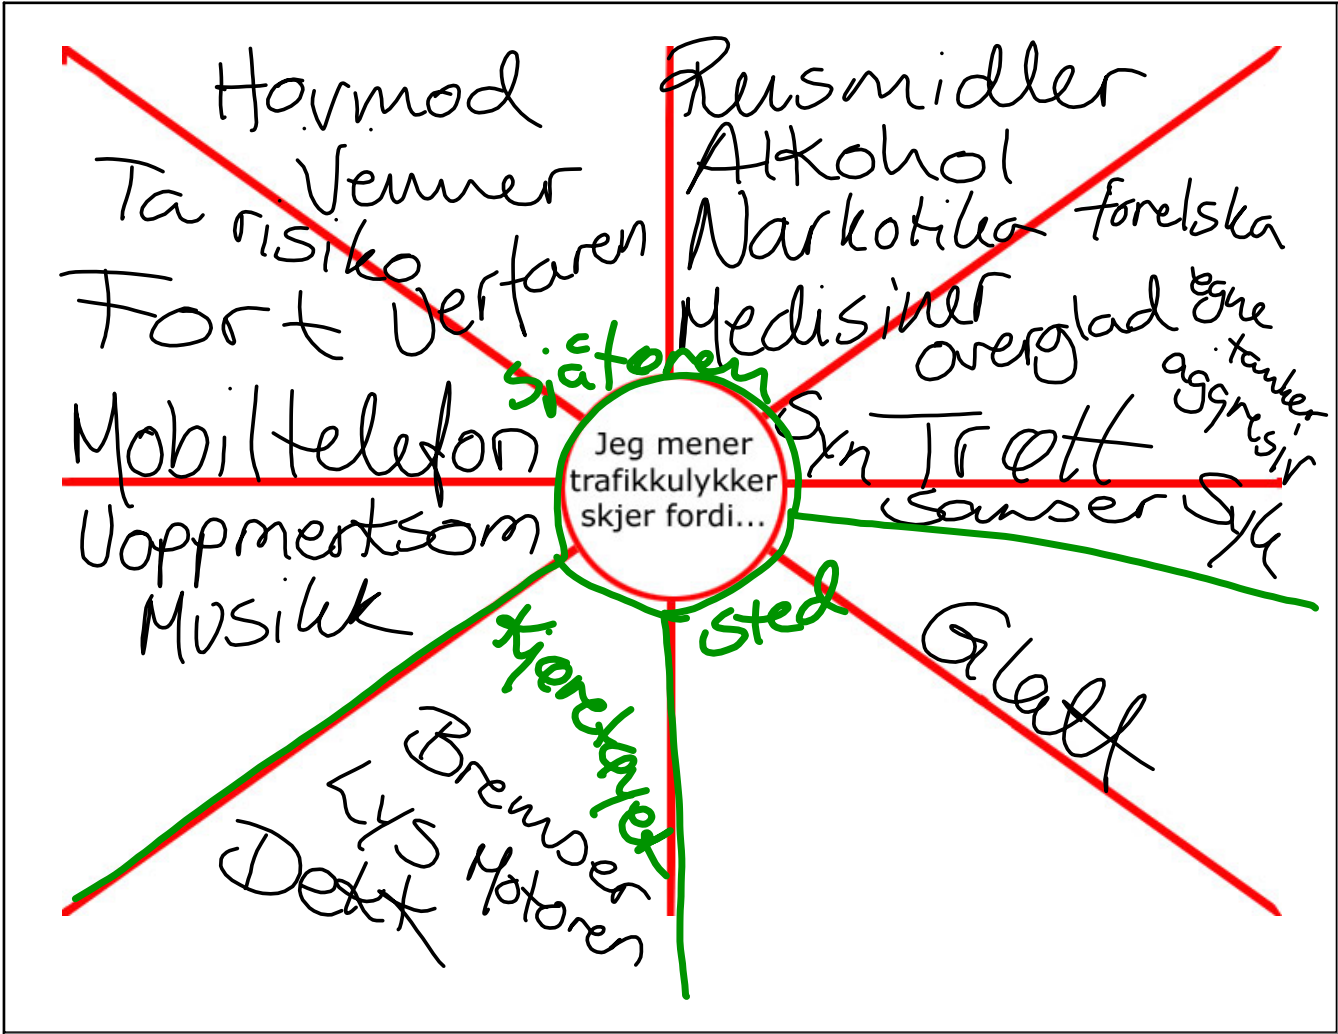 Hovmod
Venner
Ta risiko
Uerfaren
Fort
Mobiltelefon
Uoppmerksom
Musikk
Rusmidler
Alkohol
Narkotika
Medisiner
forelska
overglad
egne
tanker
aggresiv
Syn
Trøtt
sanser
Syk
sjåføren
Jeg mener
trafikkulykker
skjer fordi...
sted
Glatt
Kjøretøyet
Bremser
Lys
Motoren
Dekk